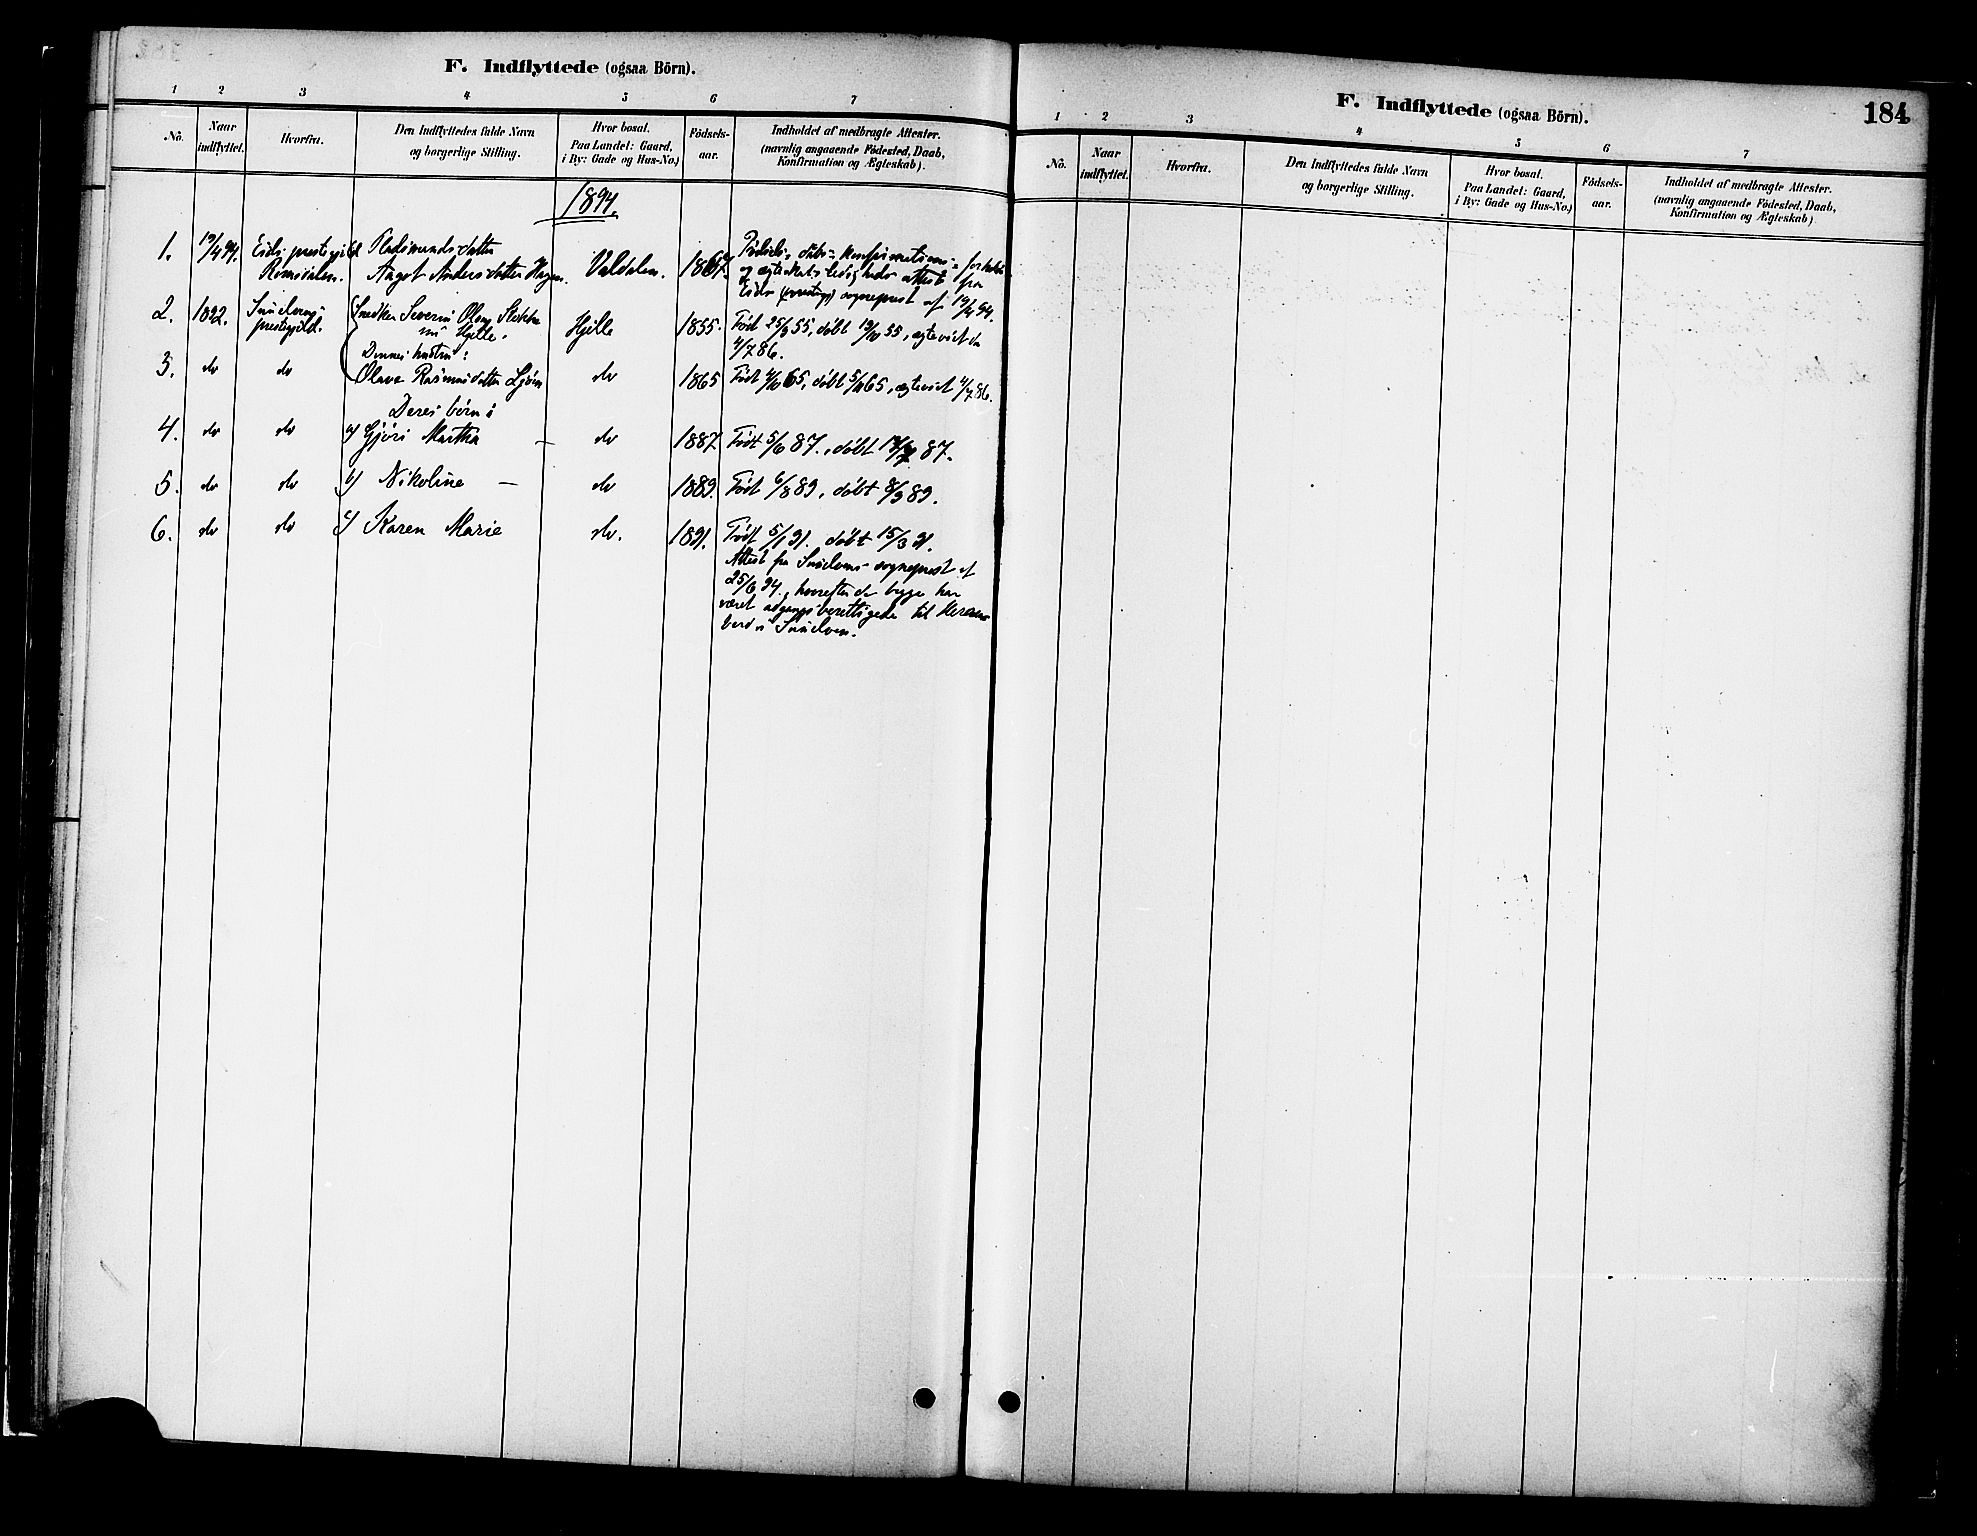 F. Indflyttede (ogsaa Börn).
1 2 3 4 5 6 7
No. Naar indflyttet. Hvorfra. Den Indflyttedes fulde Navn og borgerlige Stilling. Hvor bosat. Paa Landet: Gaard, i By: Gade og Hus-No.) Födsels-aar. Indholdet af medbragte Attester. (navnlig angaaende Födested, Daab, Konfirmation og Ægteskab).
1894.
1. 19/4 94. Eids prestegjeld Romsdalen. Pladsmandsdatter Aagot Andersdatter Hagen. Valdalen. 1867. Fødsels-, dåbs-, konfirmations-
og ægteskabsledigheds attest fra
Eids sogneprest af 19/4 94.
2. 1892. Sunelvens prestegjeld. Snedker Severin Olsen Stokke nu Hjelle. Hjelle 1855. Født 25/9 55, døbt 19/10 55, ægteviet den
4/7 86.
3. do do Dennes hustru: Olave Rasmusdatter Ljøen do 1865 Født 4/10 65, døbt 5/11 65, ægteviet 4/7 86.
Deres børn:
4. do do a) Gjøri Martha — do 1887. Født 5/6 87., døbt 87.
5. do do b) Nikoline — do 1889. Født 6/8 89, døbt 8/9 89.
6. do do c) Karen Marie do. 1891. Født 5/1 91. døbt 15/3 91.
Attest fra Sunelvens sogneprest af
25/6 94., hvorefter de begge har
været adgangsberettigede til Herrens
bord i Sunelven.
184
F. Indflyttede (ogsaa Börn).
1 2 3 4 5 6 7
No. Naar indflyttet. Hvorfra. Den Indflyttedes fulde Navn og borgerlige Stilling. Hvor bosat. Paa Landet: Gaard, i By: Gade og Hus-No.) Födsels-aar. Indholdet af medbragte Attester. (navnlig angaaende Födested, Daab, Konfirmation og Ægteskab)